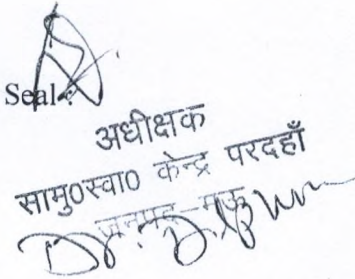 Seal :
अधीक्षक
सामु0स्वा0 केन्द्र परदहाँ
जनपद-मऊ